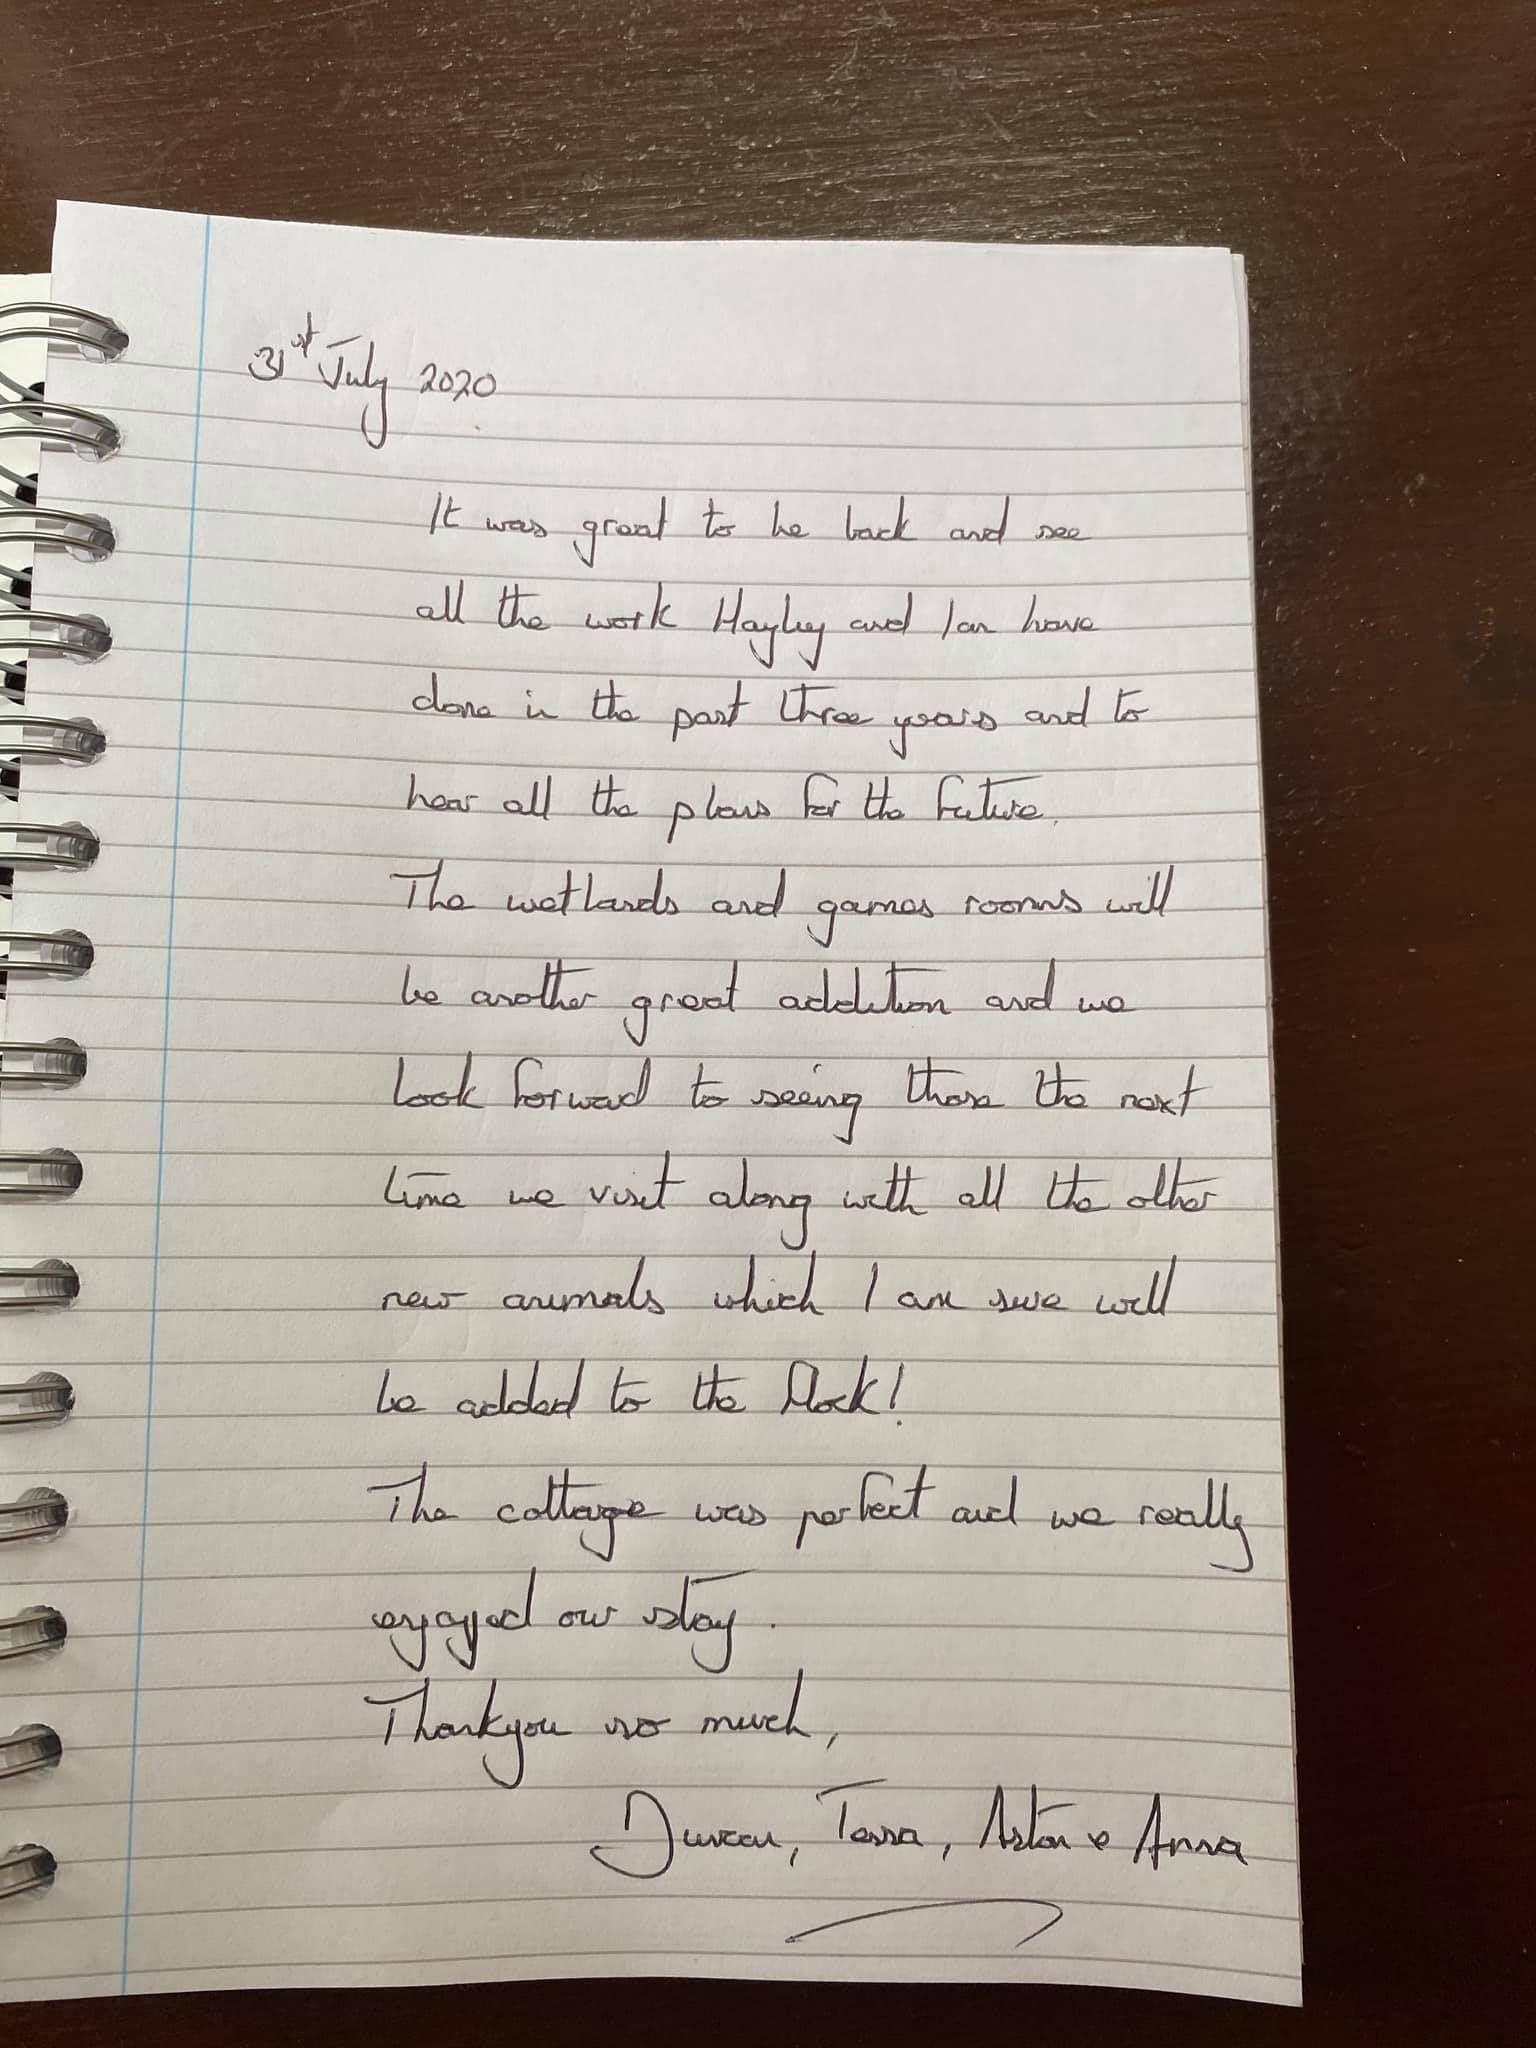 31st July 2020
It was great to be back and see
all the work Hayley and Ian have
done in the past three years and to
hear all the plans for the future.
The wetlands and games rooms will
be another great addition and we
look forward to seeing those the next
time we visit along with all the other
new animals which I am sure will
be added to the flock!
The cottage was perfect and we really
enjoyed our stay.
Thankyou so much,
Duncan, Tessa, Aston & Anna